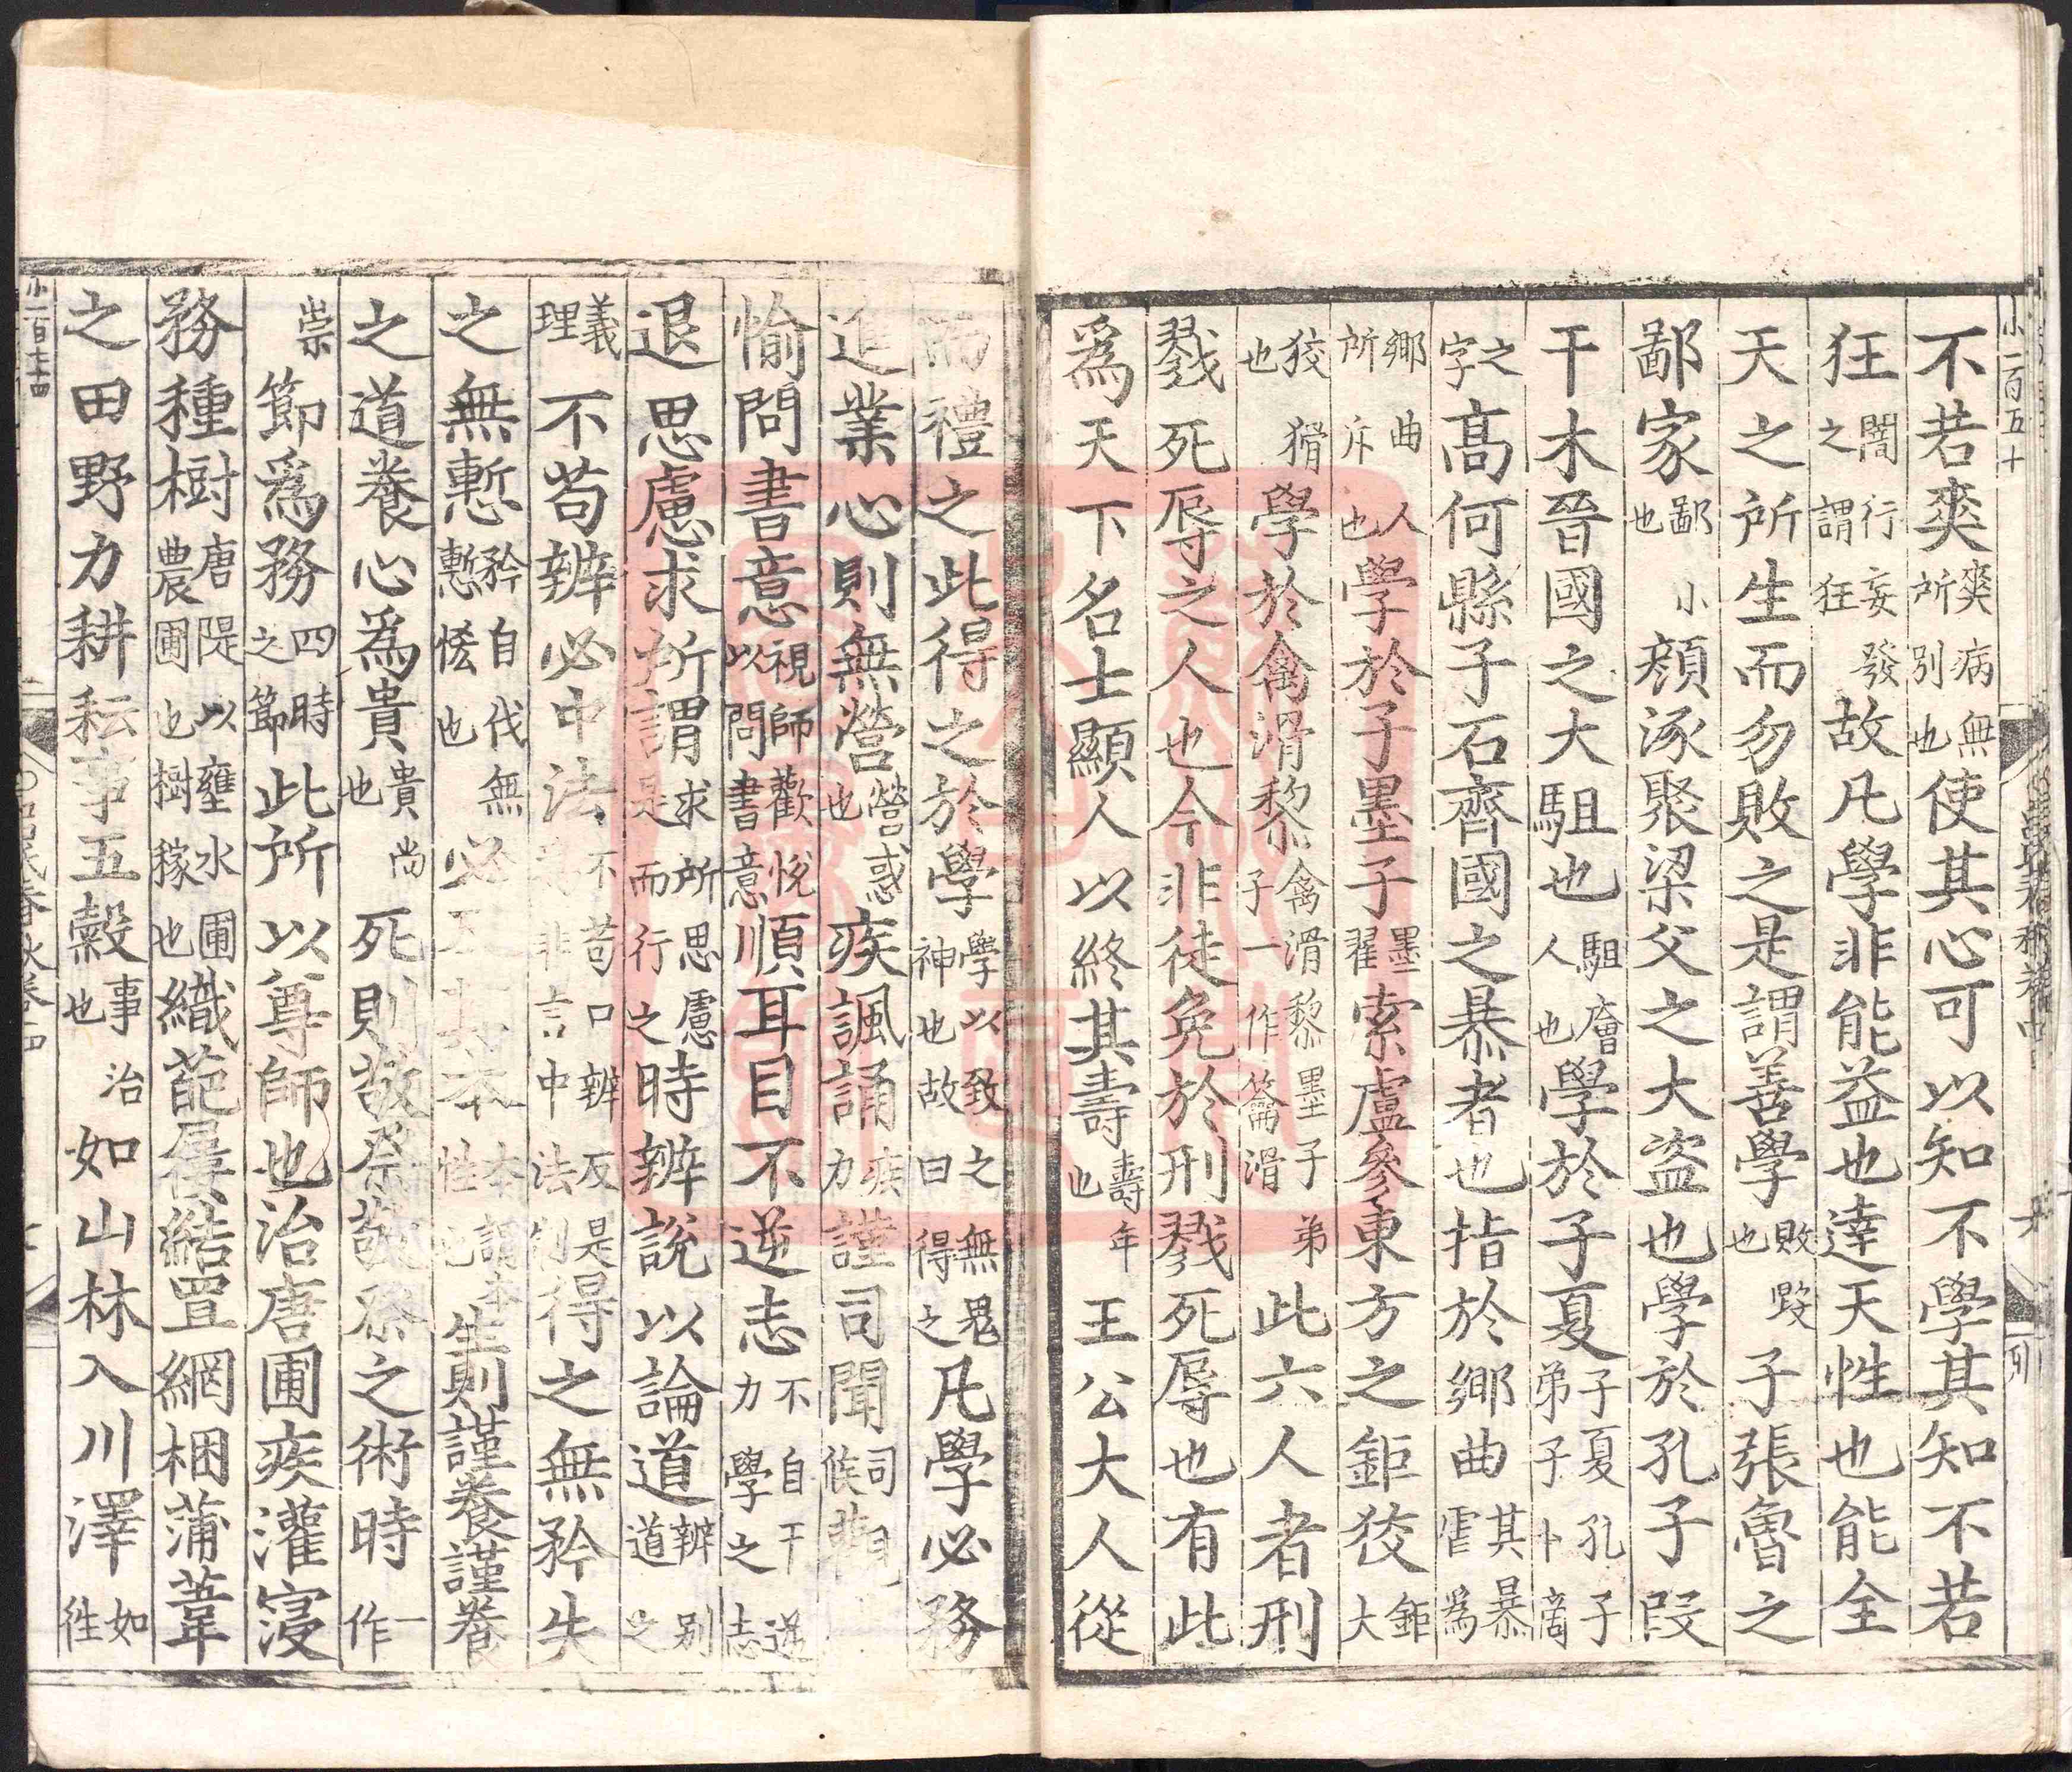 不若爽爽病無所別也使其心可以知不學其知不若
狂闇行妄發之謂狂故凡學非能益也達天性也能全
天之所生而勿敗之是謂善學敗毀也子張魯之
鄙家鄙小也顔涿聚梁父之大盜也學於孔子段
干木晉國之大駔也駔儈人也學於子夏子夏孔子弟子卜商
之字高何縣子石齊國之暴者也指於鄉曲其暴虐爲
鄉曲人所斥也學於子墨子墨翟索盧參東方之鉅狡鉅大
狡猾也學於禽滑黎禽滑黎墨子弟子一作籥滑此六人者刑
戮死辱之人也今非徒免於刑戮死辱也有此
爲天下名士顯人以終其壽壽年也王公大人從
而禮之此得之於學學以致之無鬼神也故曰得之凡學必務
進業心則無營營惑也疾諷誦疾力謹司聞司候
愉問書意視師歡悅以問書意順耳目不逆志不自干逆力學之志
退思慮求所謂求所思慮是而行之時辨說以論道辨別道之
義理不苟辨必中法不苟口辨反是非言中法得之無矜失
之無慙矜自伐無慙慙恡也必本生則謹養謹養
之道養心爲貴貴尚也死則敬祭敬祭之術時一作
崇節爲務四時之節此所以尊師也治唐圃疾灌寖
務種樹唐隄以壅水圃農圃也樹稼也織葩屨結罝網梱蒲葦
之田野力耕耘事五穀事治也如山林入川澤如往
小二百五十
小二百十四